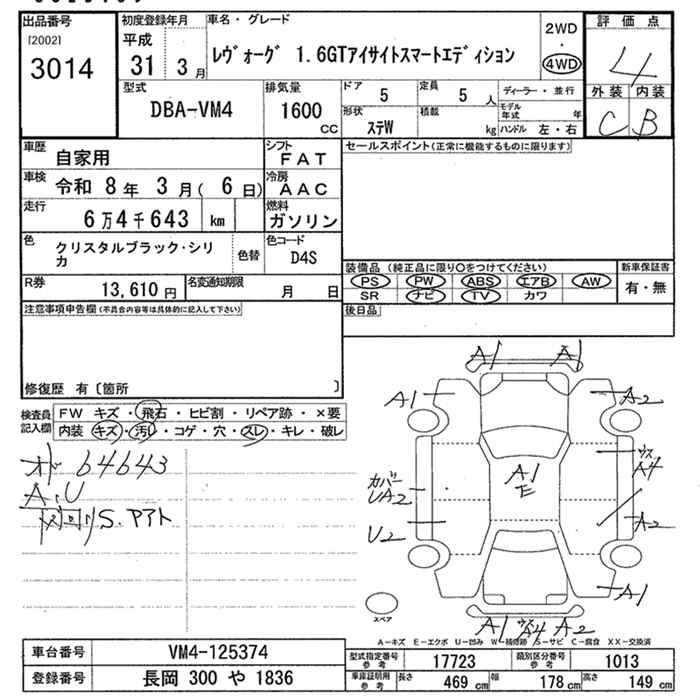 出品番号 初度登録年月 車名・グレード 2WD 評価点
[2002] 平成 ・ 4
3014 31年 3月 レヴォーグ 1.6GTアイサイトスマートエディション 4WD
型式 排気量 ドア 5 定員 5人 ディーラー・並行 外装 内装
DBA-VM4 1600cc 形状 ステW 積載 kg モデル年式 年 C B
ハンドル 左・右
車歴 自家用 シフト FAT セールスポイント(正常に機能するものに限ります)
車検 令和 8年 3月( 6日) 冷房 AAC
走行 6万4千643 km 燃料 ガソリン
色 クリスタルブラック・シリカ 色替 色コード D4S
装備品 (純正品に限り○をつけてください) 新車保証書
R券 13,610円 名変通知期限 月 日 PS PW ABS エアB AW 有・無
SR ナビ TV カワ
注意事項申告欄(不具合内容等は具体的に記入して下さい) 後日品
修復歴 有〔箇所 〕
検査員記入欄 FW キズ・飛石・ヒビ割・リペア跡・×要
内装 キズ・汚レ・コゲ・穴・スレ・キレ・破レ
オド 64643
A,U
S.アイト
A1 A1
A1 A2
ウス A4
カバー UA2 A1 E
U2 A2
A1
A1 ウス A4 A2
スペア
A-キズ E-エクボ U-凹み W-補修跡 S-サビ C-腐食 XX-交換済
車台番号 VM4-125374 型式指定番号 参考 17723 類別区分番号 参考 1013
登録番号 長岡 300 や 1836 車庫証明用 参考 長さ 469cm 幅 178cm 高さ 149cm